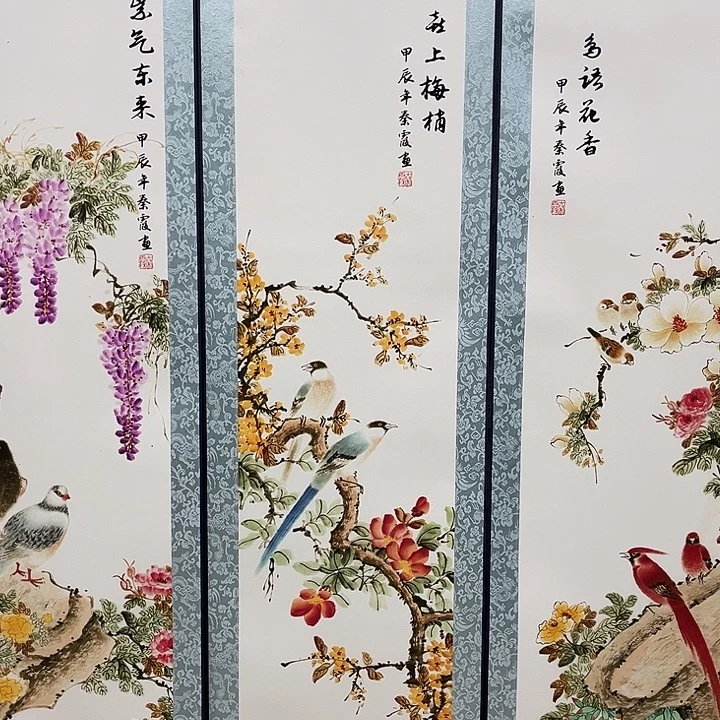 紫气东来
甲辰年秦霞画
喜上梅梢
甲辰年秦霞画
鸟语花香
甲辰年秦霞画